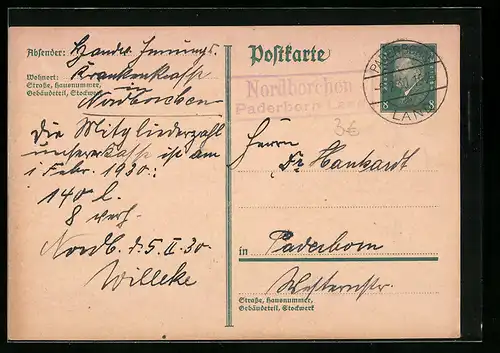 Absender: Handw. Innungs-
Krankenkasse
Wohnort:
Straße, Hausnummer,
Gebäudeteil, Stockwerk
in
Nordborchen
Die Mitgliederzahl
unserer Kasse ist am
1 Febr. 1930:
140 l.
8 verh.
Nordb. d. 5. II. 30
Willeke
Postkarte
Nordborchen
Paderborn Land
PADERBORN
LAND
8 8
3€
Herrn
Fr Hankardt
in Paderborn
Westernstr.
Straße, Hausnummer,
Gebäudeteil, Stockwerk